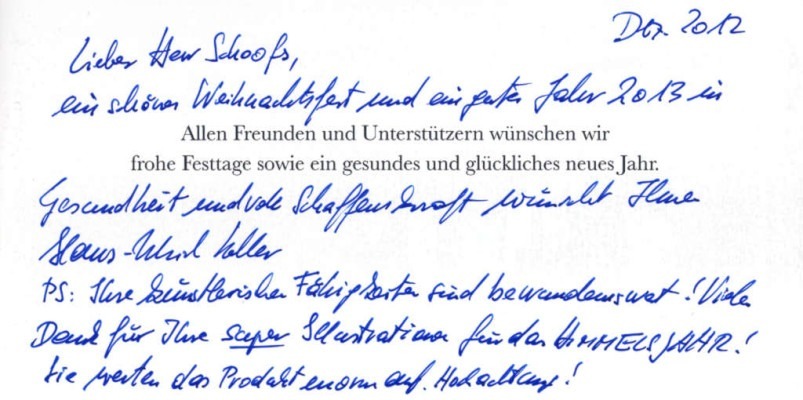 Dez. 2012
Lieber Herr Schoofs,
ein schönes Weihnachtsfest und ein gutes Jahr 2013 in
Allen Freunden und Unterstützern wünschen wir
frohe Festtage sowie ein gesundes und glückliches neues Jahr.
Gesundheit und voller Schaffenskraft wünscht Ihnen
Hans-Ulrich Keller
PS: Ihre künstlerischen Fähigkeiten sind bewundernswert! Vielen
Dank für Ihre super Illustrationen für das HIMMELSJAHR!
Sie werten das Produkt enorm auf. Hochachtung!